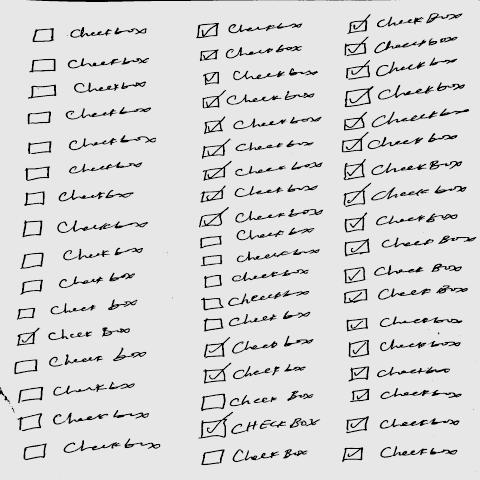 Checkbox
Checkbox
Checkbox
Checkbox
Checkbox
Checkbox
Checkbox
Checkbox
Check box
Check box
Check box
Check Box
Check box
Checkbox
Checkbox
Checkbox
Checkbox
Checkbox
Checkbox
Checkbox
Checkbox
Check box
Check box
Check box
Checkbox
Check box
Check box
Checkbox
Checkbox
Check box
Check box
Check box
Check Box
CHECK BOX
Check Box
Check Box
Checkbox
Check box
Checkbox
Checkbox
Check box
Check Box
Check box
Check Box
Check Box
Check Box
Check Box
Checkbox
Checkbox
Checkbox
Checkbox
Checkbox
Checkbox